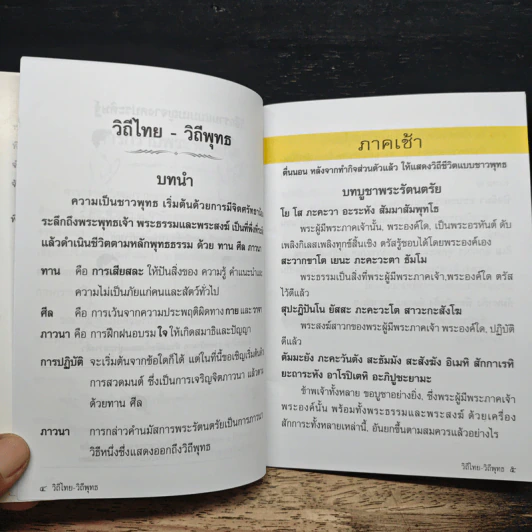 วิถีไทย - วิถีพุทธ
บทนำ
ความเป็นชาวพุทธ เริ่มต้นด้วยการมีจิตศรัทธา
ระลึกถึงพระพุทธเจ้า พระธรรมและพระสงฆ์ เป็นที่พึ่ง
แล้วดำเนินชีวิตตามหลักพุทธธรรม ด้วย ทาน ศีล ภาวนา
ทาน คือ การเสียสละ ให้ปันสิ่งของ ความรู้ คำแนะนำและ
ความไม่เป็นภัยแก่คนและสัตว์ทั่วไป
ศีล คือ การเว้นจากความประพฤติผิดทาง กาย และ วาจา
ภาวนา คือ การฝึกฝนอบรม ใจ ให้เกิดสมาธิและปัญญา
การปฏิบัติ จะเริ่มต้นจากข้อใดก็ได้ แต่ในที่นี้ขอเชิญเริ่มต้นด้วย
การสวดมนต์ ซึ่งเป็นการเจริญจิตภาวนา แล้วตาม
ด้วยทาน ศีล
ภาวนา การกล่าวคำนมัสการพระรัตนตรัยเป็นการภาวนา
วิธีหนึ่งซึ่งแสดงออกถึงวิถีพุทธ
๔ วิถีไทย-วิถีพุทธ
ภาคเช้า
ตื่นนอน หลังจากทำกิจส่วนตัวแล้ว ให้แสดงวิถีชีวิตแบบชาวพุทธ
บทบูชาพระรัตนตรัย
โย โส ภะคะวา อะระหัง สัมมาสัมพุทโธ
พระผู้มีพระภาคเจ้านั้น, พระองค์ใด, เป็นพระอรหันต์ ดับ
เพลิงกิเลสเพลิงทุกข์สิ้นเชิง ตรัสรู้ชอบได้โดยพระองค์เอง
สะวากขาโต เยนะ ภะคะวะตา ธัมโม
พระธรรมเป็นสิ่งที่พระผู้มีพระภาคเจ้า,พระองค์ใด ตรัส
ไว้ดีแล้ว
สุปะฏิปันโน ยัสสะ ภะคะวะโต สาวะกะสังโฆ
พระสงฆ์สาวกของพระผู้มีพระภาคเจ้า พระองค์ใด, ปฏิบัติ
ดีแล้ว
ตัมมะยัง ภะคะวันตัง สะธัมมัง สะสังฆัง อิเมหิ สักกาเรหิ
ยะถาระหัง อาโรปิเตหิ อะภิปูชะยามะ
ข้าพเจ้าทั้งหลาย ขอบูชาอย่างยิ่ง, ซึ่งพระผู้มีพระภาคเจ้า
พระองค์นั้น พร้อมทั้งพระธรรมและพระสงฆ์ ด้วยเครื่อง
สักการะทั้งหลายเหล่านี้, อันยกขึ้นตามสมควรแล้วอย่างไร
วิถีไทย-วิถีพุทธ ๕